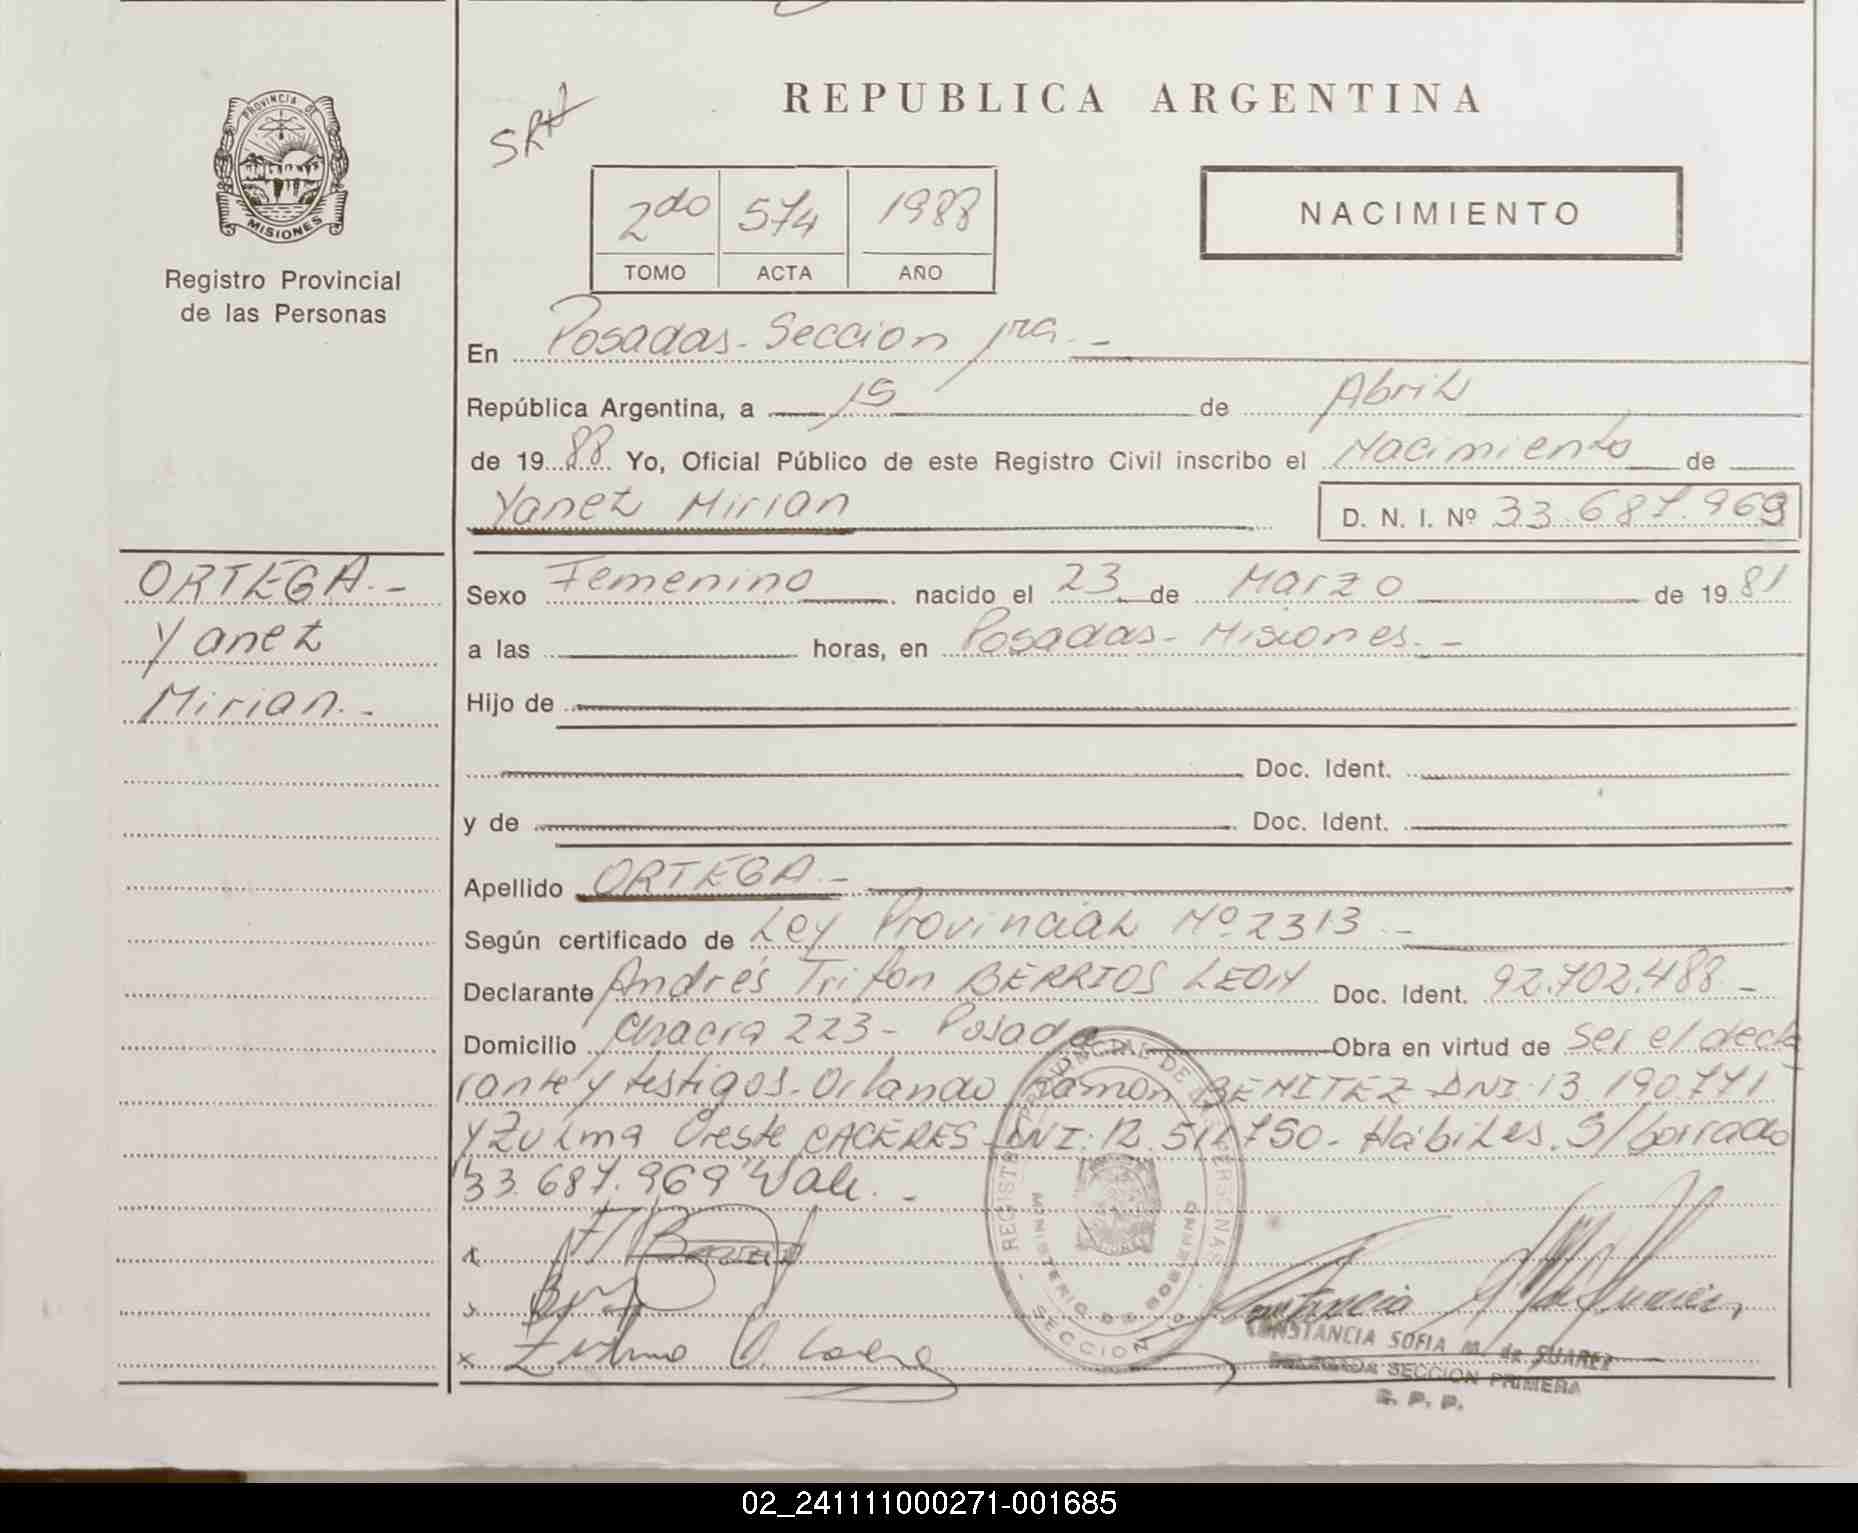 PROVINCIA DE
MISIONES
Registro Provincial
de las Personas
REPUBLICA ARGENTINA
2do 574 1988
TOMO ACTA AÑO
NACIMIENTO
En Posadas-Seccion 1ra.-
República Argentina, a 15 de Abril
de 1988 Yo, Oficial Público de este Registro Civil inscribo el Nacimiento de
Yanet Mirian D. N. I. Nº 33.687.969
ORTEGA.-
Yanet
Mirian.-
Sexo Femenino nacido el 23 de Marzo de 1981
a las horas, en Posadas-Misiones.-
Hijo de
Doc. Ident.
y de Doc. Ident.
Apellido ORTEGA.-
Según certificado de Ley Provincial Nº 2313.-
Declarante Andrés Trifon BERRIOS LEON Doc. Ident. 92.702.488.-
Domicilio Chacra 223- Posadas Obra en virtud de ser el decla
rante y testigos-Orlando Ramon BENITEZ-DNI:13.190.771
y Zulma Oreste CACERES-DNI:12. Hábiles. S/borrado
33.687.969 "Vale.-
REGISTRO PROVINCIAL DE LAS PERSONAS
MINISTERIO DE GOBIERNO
SECCION
CONSTANCIA SOFIA M. de SUAREZ
DELEGADA SECCION PRIMERA
02_241111000271-001685